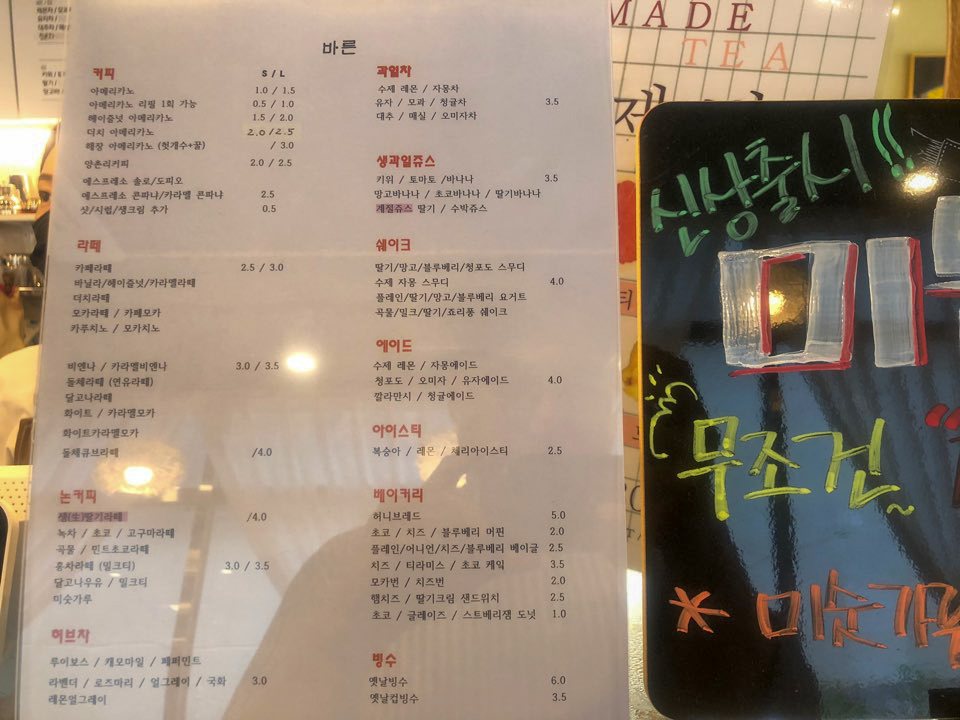 바른
커피 S / L
아메리카노 1.0 / 1.5
아메리카노 리필 1회 가능 0.5 / 1.0
헤이즐넛 아메리카노 1.5 / 2.0
더치 아메리카노 2.0 / 2.5
해장 아메리카노 (헛개수+꿀) / 3.0
양촌리커피 2.0 / 2.5
에스프레소 솔로/도피오
에스프레소 콘파나/카라멜 콘파냐 2.5
샷/시럽/생크림 추가 0.5
라떼
카페라떼 2.5 / 3.0
바닐라/헤이즐넛/카라멜라떼
더치라떼
모카라떼 / 카페모카
카푸치노 / 모카치노
비엔나 / 카라멜비엔나 3.0 / 3.5
돌체라떼 (연유라떼)
달고나라떼
화이트 / 카라멜모카
화이트카라멜모카
돌체큐브라떼 /4.0
논커피
생(生)딸기라떼 /4.0
녹차 / 초코 / 고구마라떼
곡물 / 민트초코라떼
홍차라떼 (밀크티) 3.0 / 3.5
달고나우유 / 밀크티
미숫가루
허브차
루이보스 / 캐모마일 / 페퍼민트
라벤더 / 로즈마리 / 얼그레이 / 국화 3.0
레몬얼그레이
과일차
수제 레몬 / 자몽차
유자 / 모과 / 청귤차 3.5
대추 / 매실 / 오미자차
생과일쥬스
키위 / 토마토 /바나나 3.5
망고바나나 / 초코바나나 / 딸기바나나
계절쥬스 딸기 / 수박쥬스
쉐이크
딸기/망고/블루베리/청포도 스무디
수제 자몽 스무디 4.0
플레인/딸기/망고/블루베리 요거트
곡물/밀크/딸기/죠리퐁 쉐이크
에이드
수제 레몬 / 자몽에이드
청포도 / 오미자 / 유자에이드 4.0
깔라만시 / 청귤에이드
아이스티
복숭아 / 레몬 / 체리아이스티 2.5
베이커리
허니브레드 5.0
초코 / 치즈 / 블루베리 머핀 2.0
플레인/어니언/치즈/블루베리 베이글 2.5
치즈 / 티라미스 / 초코 케익 3.5
모카번 / 치즈번 2.0
햄치즈 / 딸기크림 샌드위치 2.5
초코 / 글레이즈 / 스트베리잼 도넛 1.0
빙수
옛날빙수 6.0
옛날컵빙수 3.5
MADE
TEA
신상출시!!
미
무조건
* 미숫가루